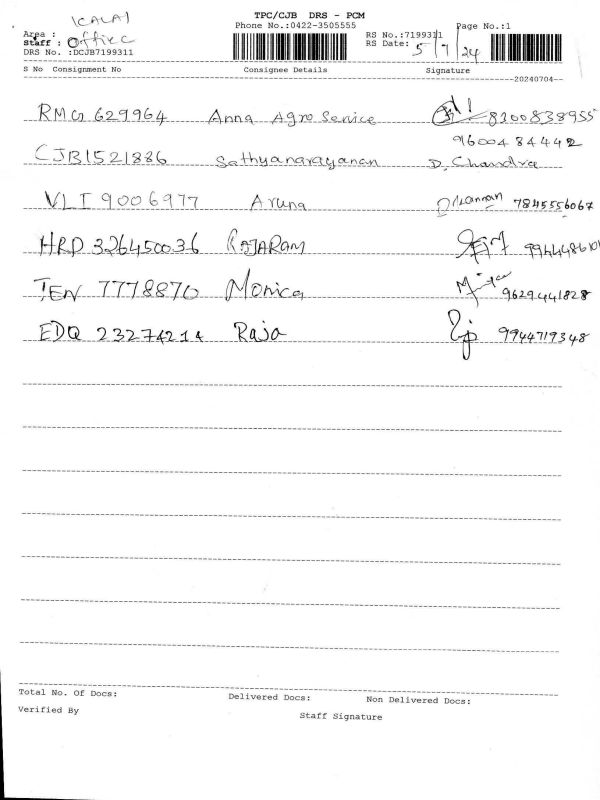 TPC/CJB DRS - PCM
KALAI
Phone No.:0422-3505555
Page No.:1
Area :
RS No.:7199311
Staff : Office
RS Date: 5/7/24
DRS No. :DCJB7199311
S No Consignment No Consignee Details Signature
20240704
RMG 629964 Anna Agro Service 8300838955
9600484442
CJB1521886 Sathyanarayanan D. Chandra
VLI 9006977 Aruna 7845556067
HRD 326450036 RAJARAM
TEN 7778870 Monica 9629441828
EDQ 23274214 Raja 9944719348
Total No. Of Docs: Delivered Docs: Non Delivered Docs:
Verified By Staff Signature